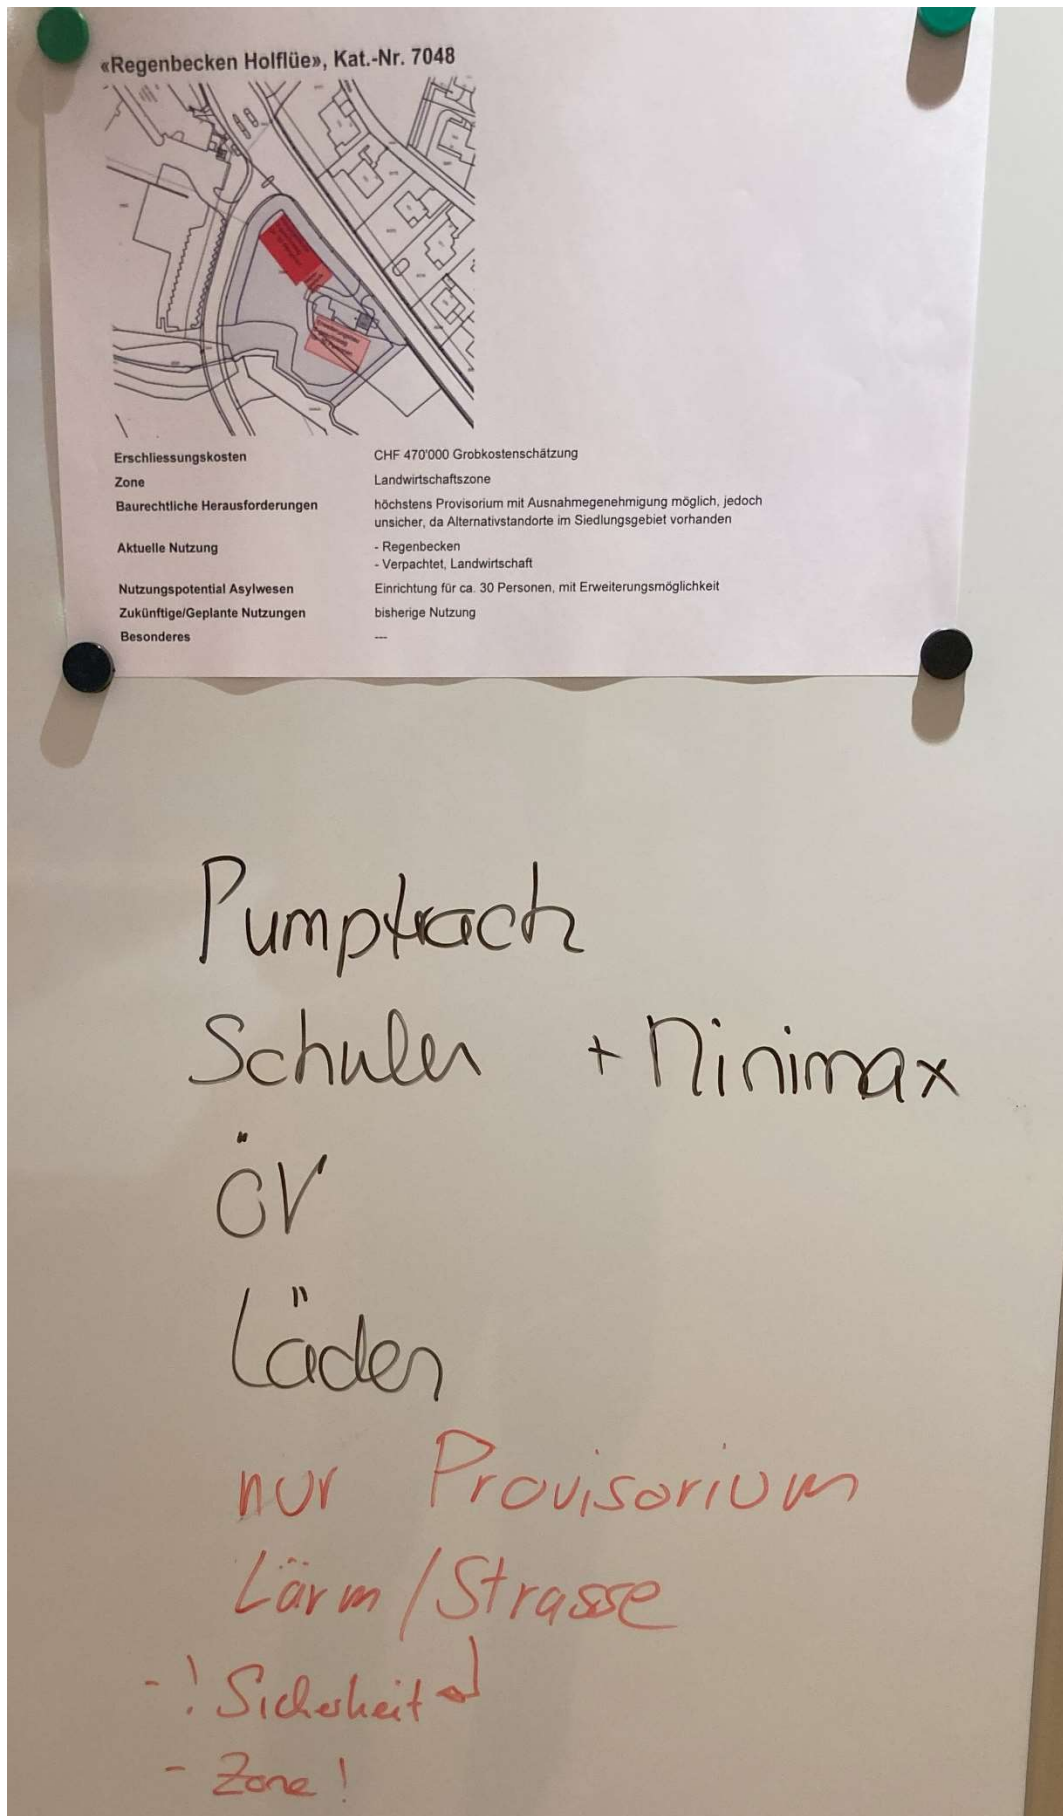 «Regenbecken Holflüe», Kat.-Nr. 7048
Erschliessungskosten CHF 470'000 Grobkostenschätzung
Zone Landwirtschaftszone
Baurechtliche Herausforderungen höchstens Provisorium mit Ausnahmegenehmigung möglich, jedoch
unsicher, da Alternativstandorte im Siedlungsgebiet vorhanden
Aktuelle Nutzung - Regenbecken
- Verpachtet, Landwirtschaft
Nutzungspotential Asylwesen Einrichtung für ca. 30 Personen, mit Erweiterungsmöglichkeit
Zukünftige/Geplante Nutzungen bisherige Nutzung
Besonderes ---
Pumptrack
Schulen + Minimax
ÖV
Läden
nur Provisorium
Lärm/Strasse
- ! Sicherheit
- Zone !